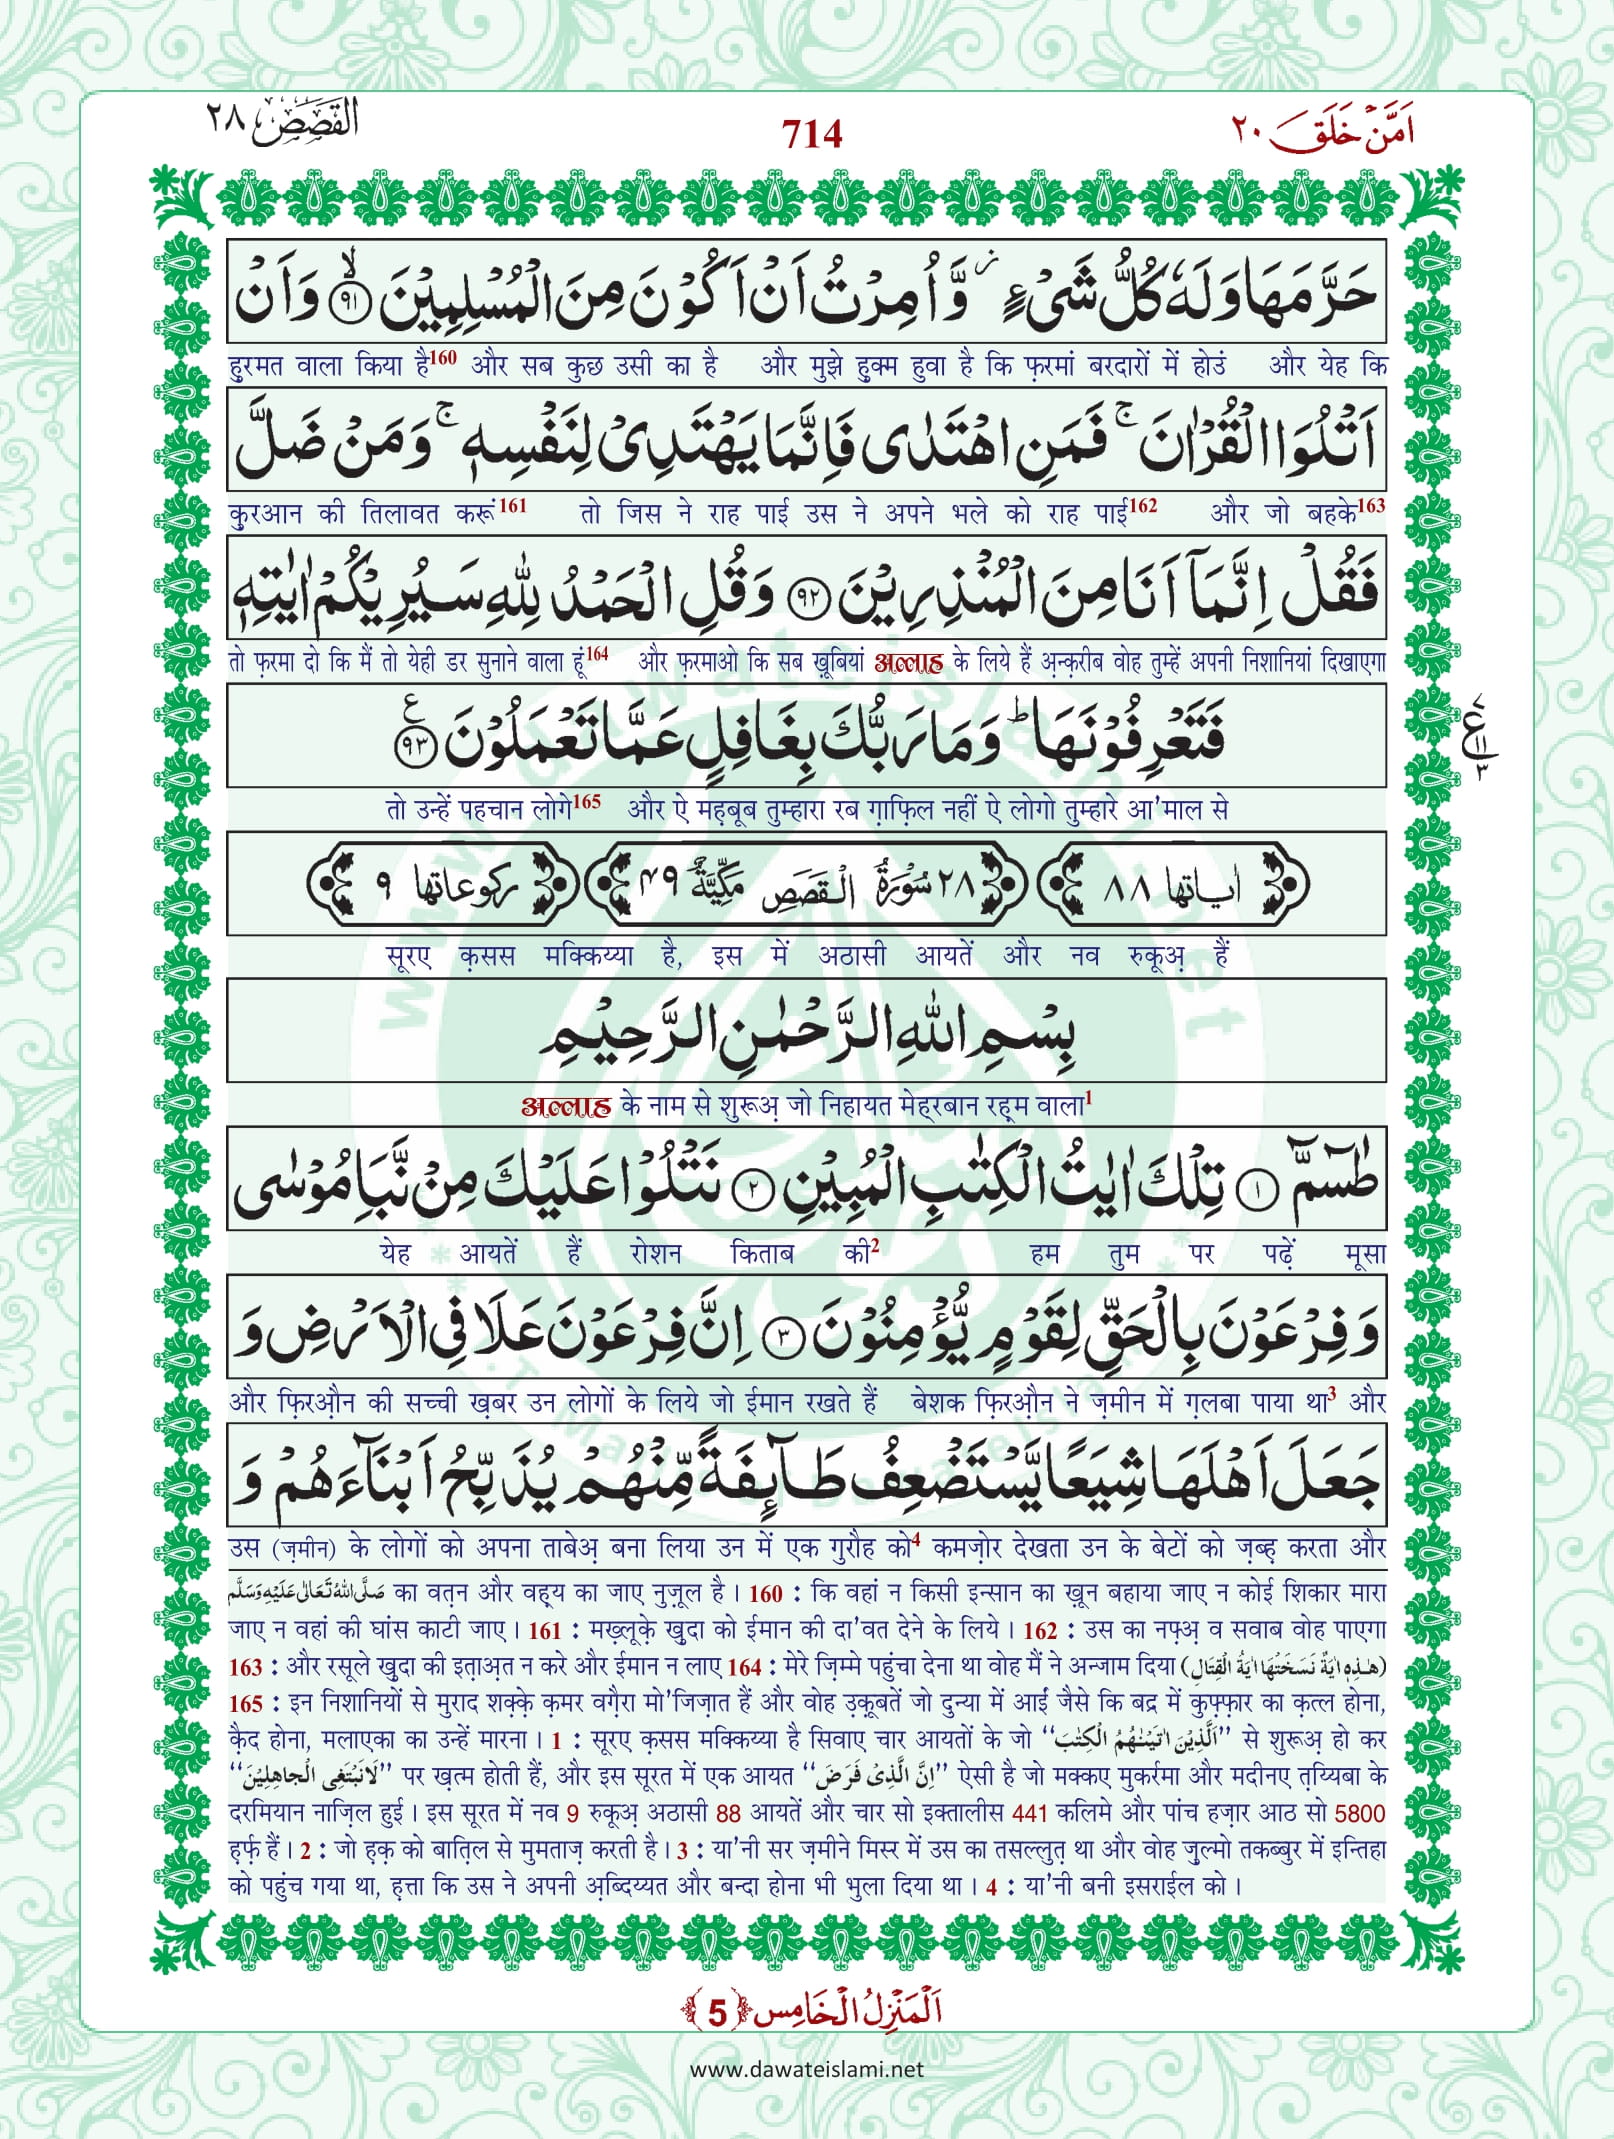 اَمَّنْ خَلَقَ ٢٠
714
القَصَص ٢٨
حَرَّمَهَا وَلَهٗ كُلُّ شَیْءٍ ٘ وَّ اُمِرْتُ اَنْ اَكُوْنَ مِنَ الْمُسْلِمِیْنَۙ ﴿٩١﴾ وَ اَنْ
हुरमत वाला किया है160 और सब कुछ उसी का है और मुझे हुक्म हुवा है कि फ़रमां बरदारों में होउं और येह कि
اَتْلُوَا الْقُرْاٰنَۚ فَمَنِ اهْتَدٰى فَاِنَّمَا یَهْتَدِیْ لِنَفْسِهٖۚ وَ مَنْ ضَلَّ
कुरआन की तिलावत करूं161 तो जिस ने राह पाई उस ने अपने भले को राह पाई162 और जो बहके163
فَقُلْ اِنَّمَاۤ اَنَا مِنَ الْمُنْذِرِیْنَ ﴿٩٢﴾ وَ قُلِ الْحَمْدُ لِلّٰهِ سَیُرِیْكُمْ اٰیٰتِهٖ
तो फ़रमा दो कि मैं तो येही डर सुनाने वाला हूं164 और फ़रमाओ कि सब ख़ूबियां अल्लाह के लिये हैं अ़न्क़रीब वोह तुम्हें अपनी निशानियां दिखाएगा
فَتَعْرِفُوْنَهَاؕ وَ مَا رَبُّكَ بِغَافِلٍ عَمَّا تَعْمَلُوْنَ ﴿٩٣﴾ ع
ع ١١ ٣
तो उन्हें पहचान लोगे165 और ऐ मह़बूब तुम्हारा रब ग़ाफ़िल नहीं ऐ लोगो तुम्हारे आ'माल से
اٰیاتها ٨٨ ٢٨ سُوْرَةُ الْقَصَصِ مَكِّیَّةٌ ٤٩ ركوعاتها ٩
सूरए क़सस मक्किय्या है, इस में अठासी आयतें और नव रुकूअ़ हैं
بِسْمِ اللّٰهِ الرَّحْمٰنِ الرَّحِیْمِ
अल्लाह के नाम से शुरूअ़ जो निहायत मेह्‌रबान रह़्म वाला1
طٰسٓمّٓ ﴿١﴾ تِلْكَ اٰیٰتُ الْكِتٰبِ الْمُبِیْنِ ﴿٢﴾ نَتْلُوْا عَلَیْكَ مِنْ نَّبَاِ مُوْسٰى
येह आयतें हैं रोशन किताब की2 हम तुम पर पढ़ें मूसा
وَ فِرْعَوْنَ بِالْحَقِّ لِقَوْمٍ یُّؤْمِنُوْنَ ﴿٣﴾ اِنَّ فِرْعَوْنَ عَلَا فِی الْاَرْضِ وَ
और फ़िरऔ़न की सच्ची ख़बर उन लोगों के लिये जो ईमान रखते हैं बेशक फ़िरऔ़न ने ज़मीन में ग़लबा पाया था3 और
جَعَلَ اَهْلَهَا شِیَعًا یَّسْتَضْعِفُ طَآىٕفَةً مِّنْهُمْ یُذَبِّحُ اَبْنَآءَهُمْ وَ
उस (ज़मीन) के लोगों को अपना ताबेअ़ बना लिया उन में एक गुरौह को4 कमज़ोर देखता उन के बेटों को ज़ब्ह़ करता और
صَلَّى اللهُ تَعَالٰى عَلَيْهِ وَسَلَّم का वत़न और वह़्य का जाए नुज़ूल है। 160 : कि वहां न किसी इन्सान का ख़ून बहाया जाए न कोई शिकार मारा
जाए न वहां की घांस काटी जाए। 161 : मख़्लूक़े ख़ुदा को ईमान की दा'वत देने के लिये। 162 : उस का नफ़्अ़ व सवाब वोह पाएगा
163 : और रसूले ख़ुदा की इत़ाअ़त न करे और ईमान न लाए 164 : मेरे ज़िम्मे पहुंचा देना था वोह मैं ने अन्जाम दिया (هٰذِهٖ اٰيَةٌ نَسَخَتْهَا اٰيَةُ الْقِتَالِ)
165 : इन निशानियों से मुराद शक़्के़ क़मर वग़ैरा मो'जिज़ात हैं और वोह उ़क़ूबतें जो दुन्या में आईं जैसे कि बद्र में कुफ़्फ़ार का क़त्ल होना,
क़ैद होना, मलाएका का उन्हें मारना। 1 : सूरए क़सस मक्किय्या है सिवाए चार आयतों के जो “اَلَّذِيْنَ اٰتَيْنٰهُمُ الْكِتٰبَ” से शुरूअ़ हो कर
“لَا نَبْتَغِى الْجَاهِلِيْنَ” पर ख़त्म होती हैं, और इस सूरत में एक आयत “اِنَّ الَّذِىْ فَرَضَ” ऐसी है जो मक्कए मुकर्रमा और मदीनए त़य्यिबा के
दरमियान नाज़िल हुई। इस सूरत में नव 9 रुकूअ़ अठासी 88 आयतें और चार सो इक्तालीस 441 कलिमे और पांच हज़ार आठ सो 5800
ह़र्फ़ हैं। 2 : जो ह़क़ को बात़िल से मुमताज़ करती है। 3 : या'नी सर ज़मीने मिस्र में उस का तसल्लुत़ था और वोह ज़ुल्मो तकब्बुर में इन्तिहा
को पहुंच गया था, ह़त्ता कि उस ने अपनी अ़ब्दिय्यत और बन्दा होना भी भुला दिया था। 4 : या'नी बनी इसराईल को।
اَلْمَنْزِلُ الْخَامِس ﴿5﴾
www.dawateislami.net